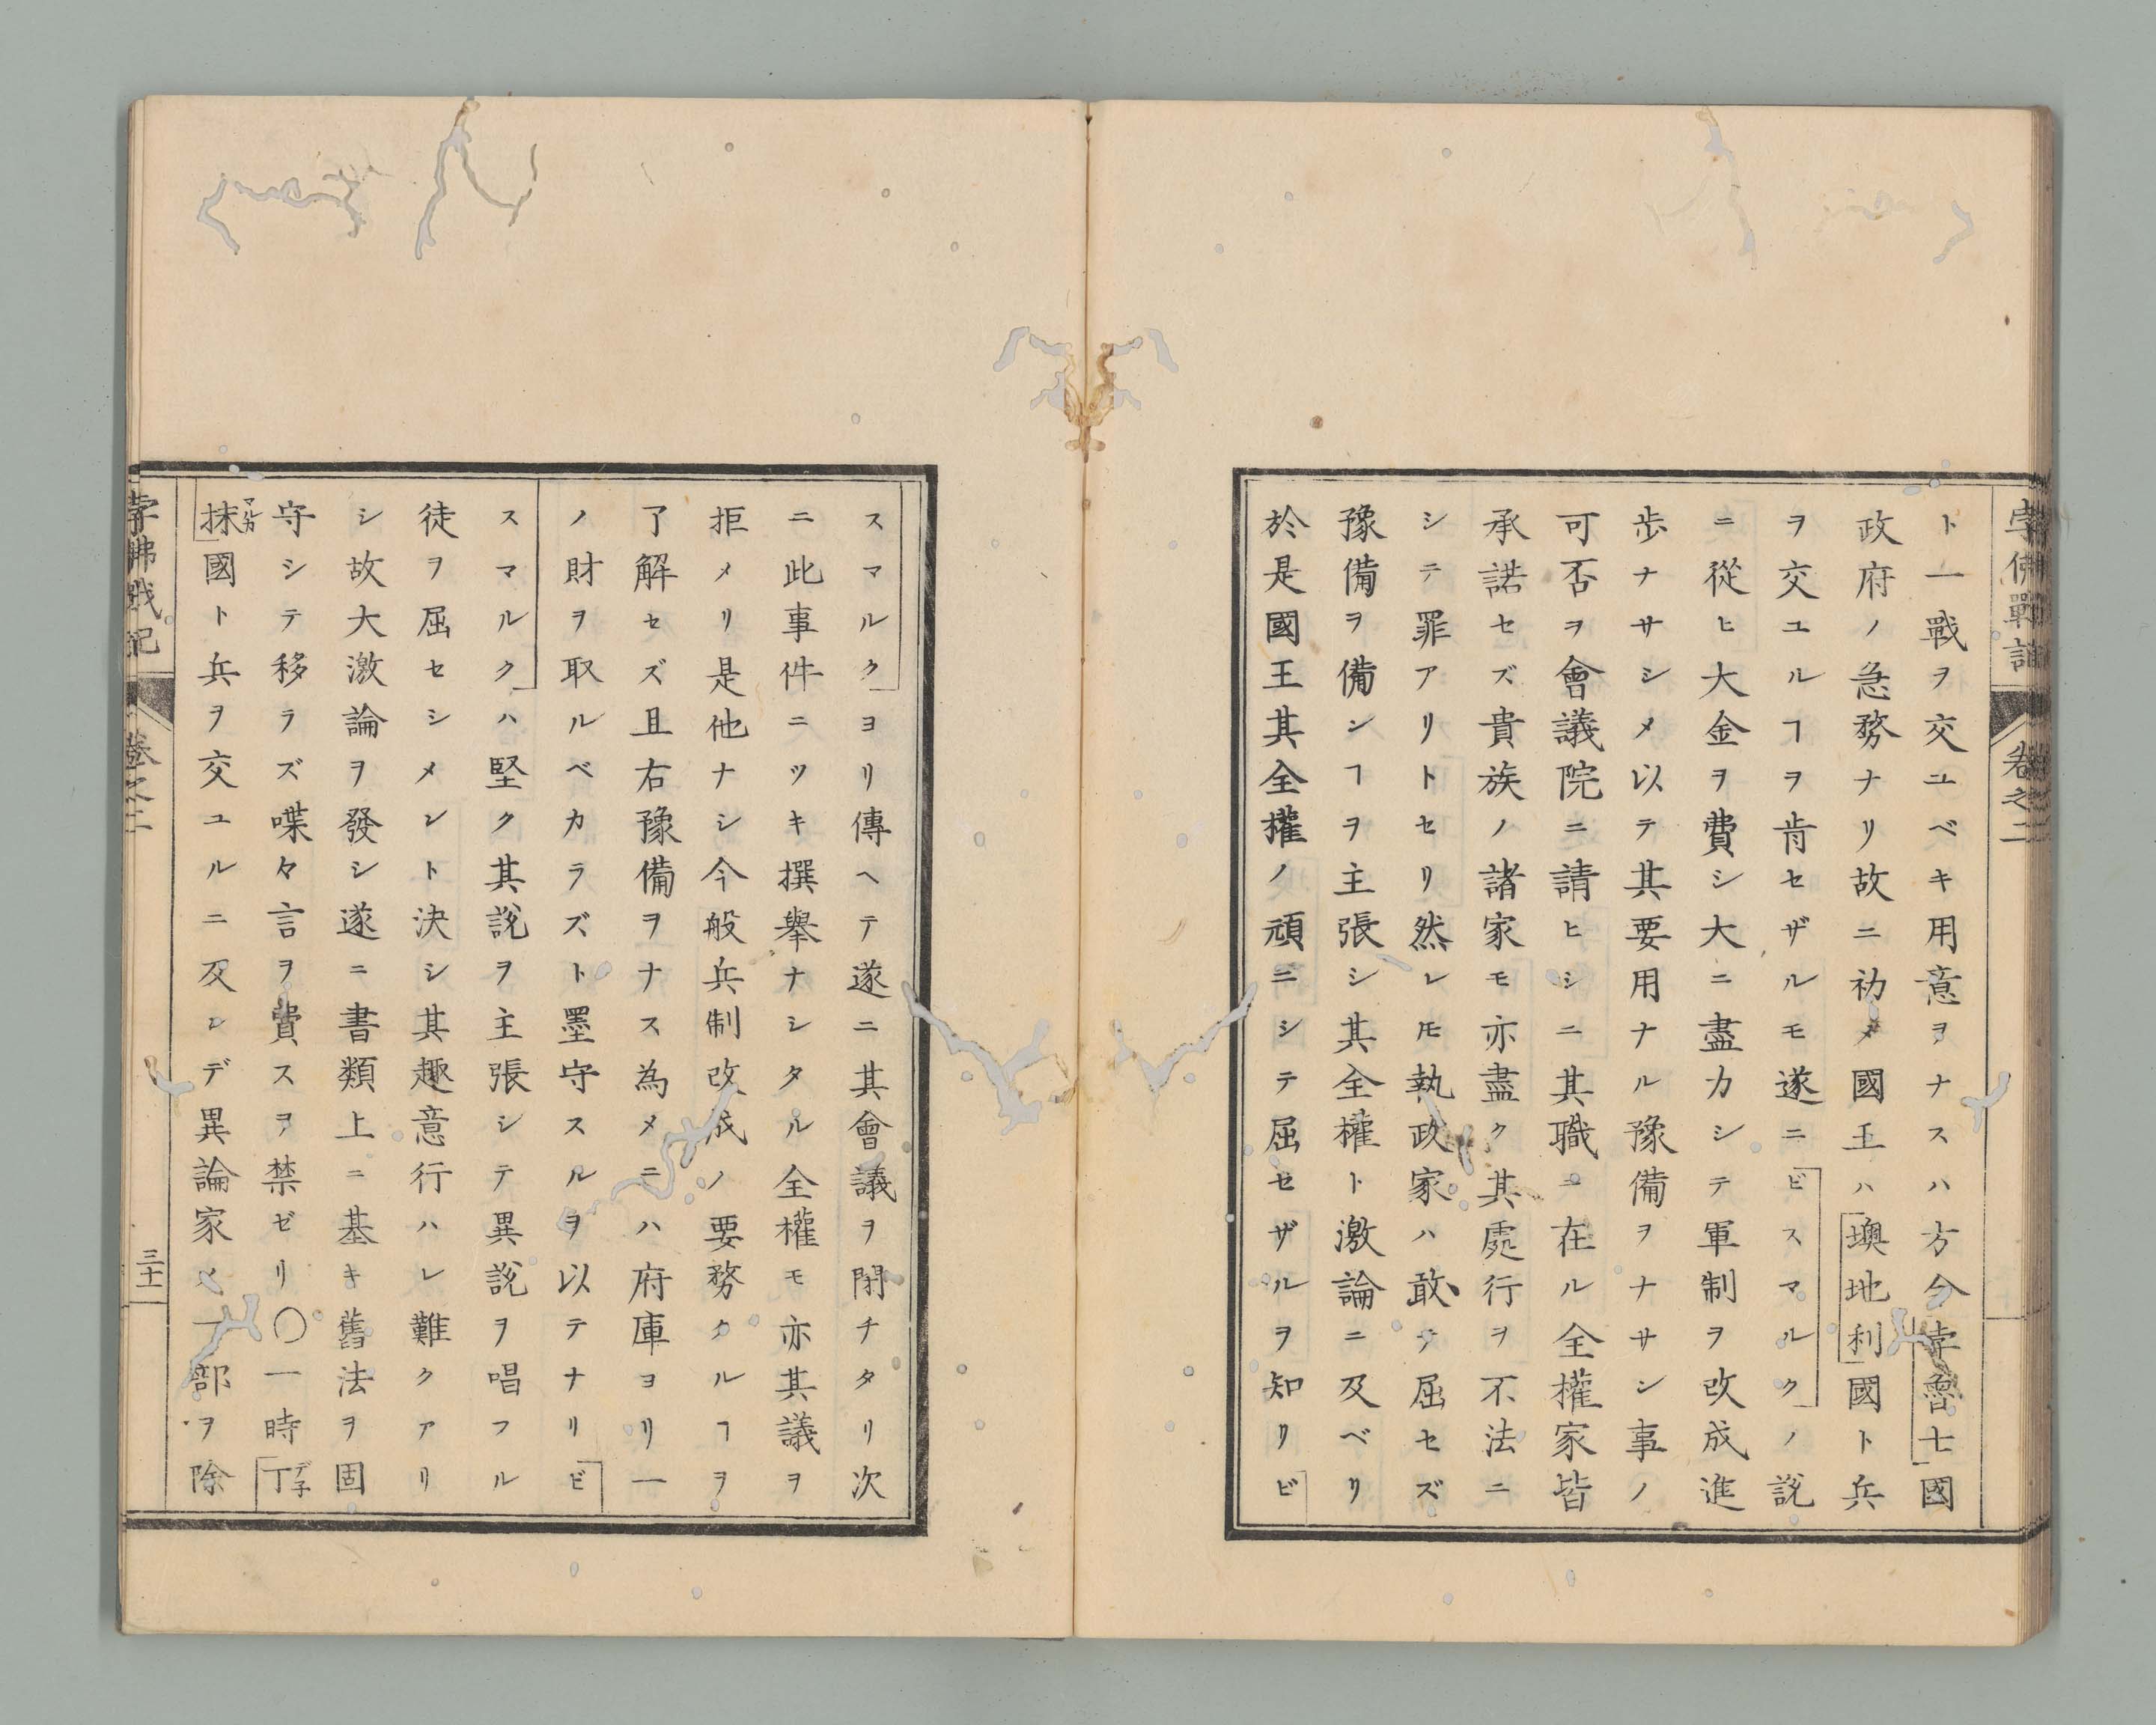 孛佛戰記
卷之二
ト一戰ヲ交ユベキ用意ヲナスハ方今孛魯士國
政府ノ急務ナリ故ニ初メ國王ハ墺地利國ト兵
ヲ交ユルヿヲ肯セザルモ遂ニビスマルクノ説
ニ從ヒ大金ヲ費シ大ニ盡力シテ軍制ヲ改成進
歩ナサシメ以テ其要用ナル豫備ヲナサン事ノ
可否ヲ會議院ニ請ヒシニ其職ニ在ル全權家皆
承諾セズ貴族ノ諸家モ亦盡ク其處行ヲ不法ニ
シテ罪アリトセリ然レ𪜈執政家ハ敢テ屈セズ
豫備ヲ備ンヿヲ主張シ其全權ト激論ニ及ベリ
於是國王其全權ノ頑ニシテ屈セザルヲ知リビ
スマルクヨリ傳ヘテ遂ニ其會議ヲ閉チタリ次
ニ此事件ニツキ撰擧ナシタル全權モ亦其議ヲ
拒メリ是他ナシ今般兵制改成ノ要務タルヿヲ
了解セズ且右豫備ヲナス為メニハ府庫ヨリ一
ノ財ヲ取ルベカラズト墨守スルヲ以テナリビ
スマルクハ堅ク其説ヲ主張シテ異説ヲ唱フル
徒ヲ屈セシメント決シ其趣意行ハレ難クアリ
シ故大激論ヲ發シ遂ニ書類上ニ基キ舊法ヲ固
守シテ移ラズ喋々言ヲ費スヲ禁ゼリ〇一時丁
デ子
抹國ト兵ヲ交ユルニ及ンデ異論家ノ一部ヲ除
マルカ
孛佛戰記
卷之二
三十一